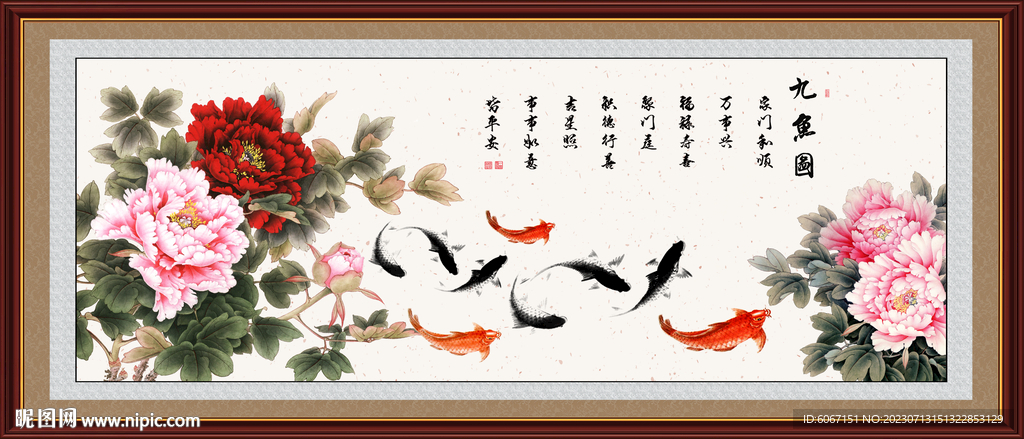 九魚圖
家门和顺
万事兴
福禄寿喜
聚门庭
积德行善
吉星照
事事如意
皆平安
昵图网 www.nipic.com
ID:6067151 NO:20230713151322853129